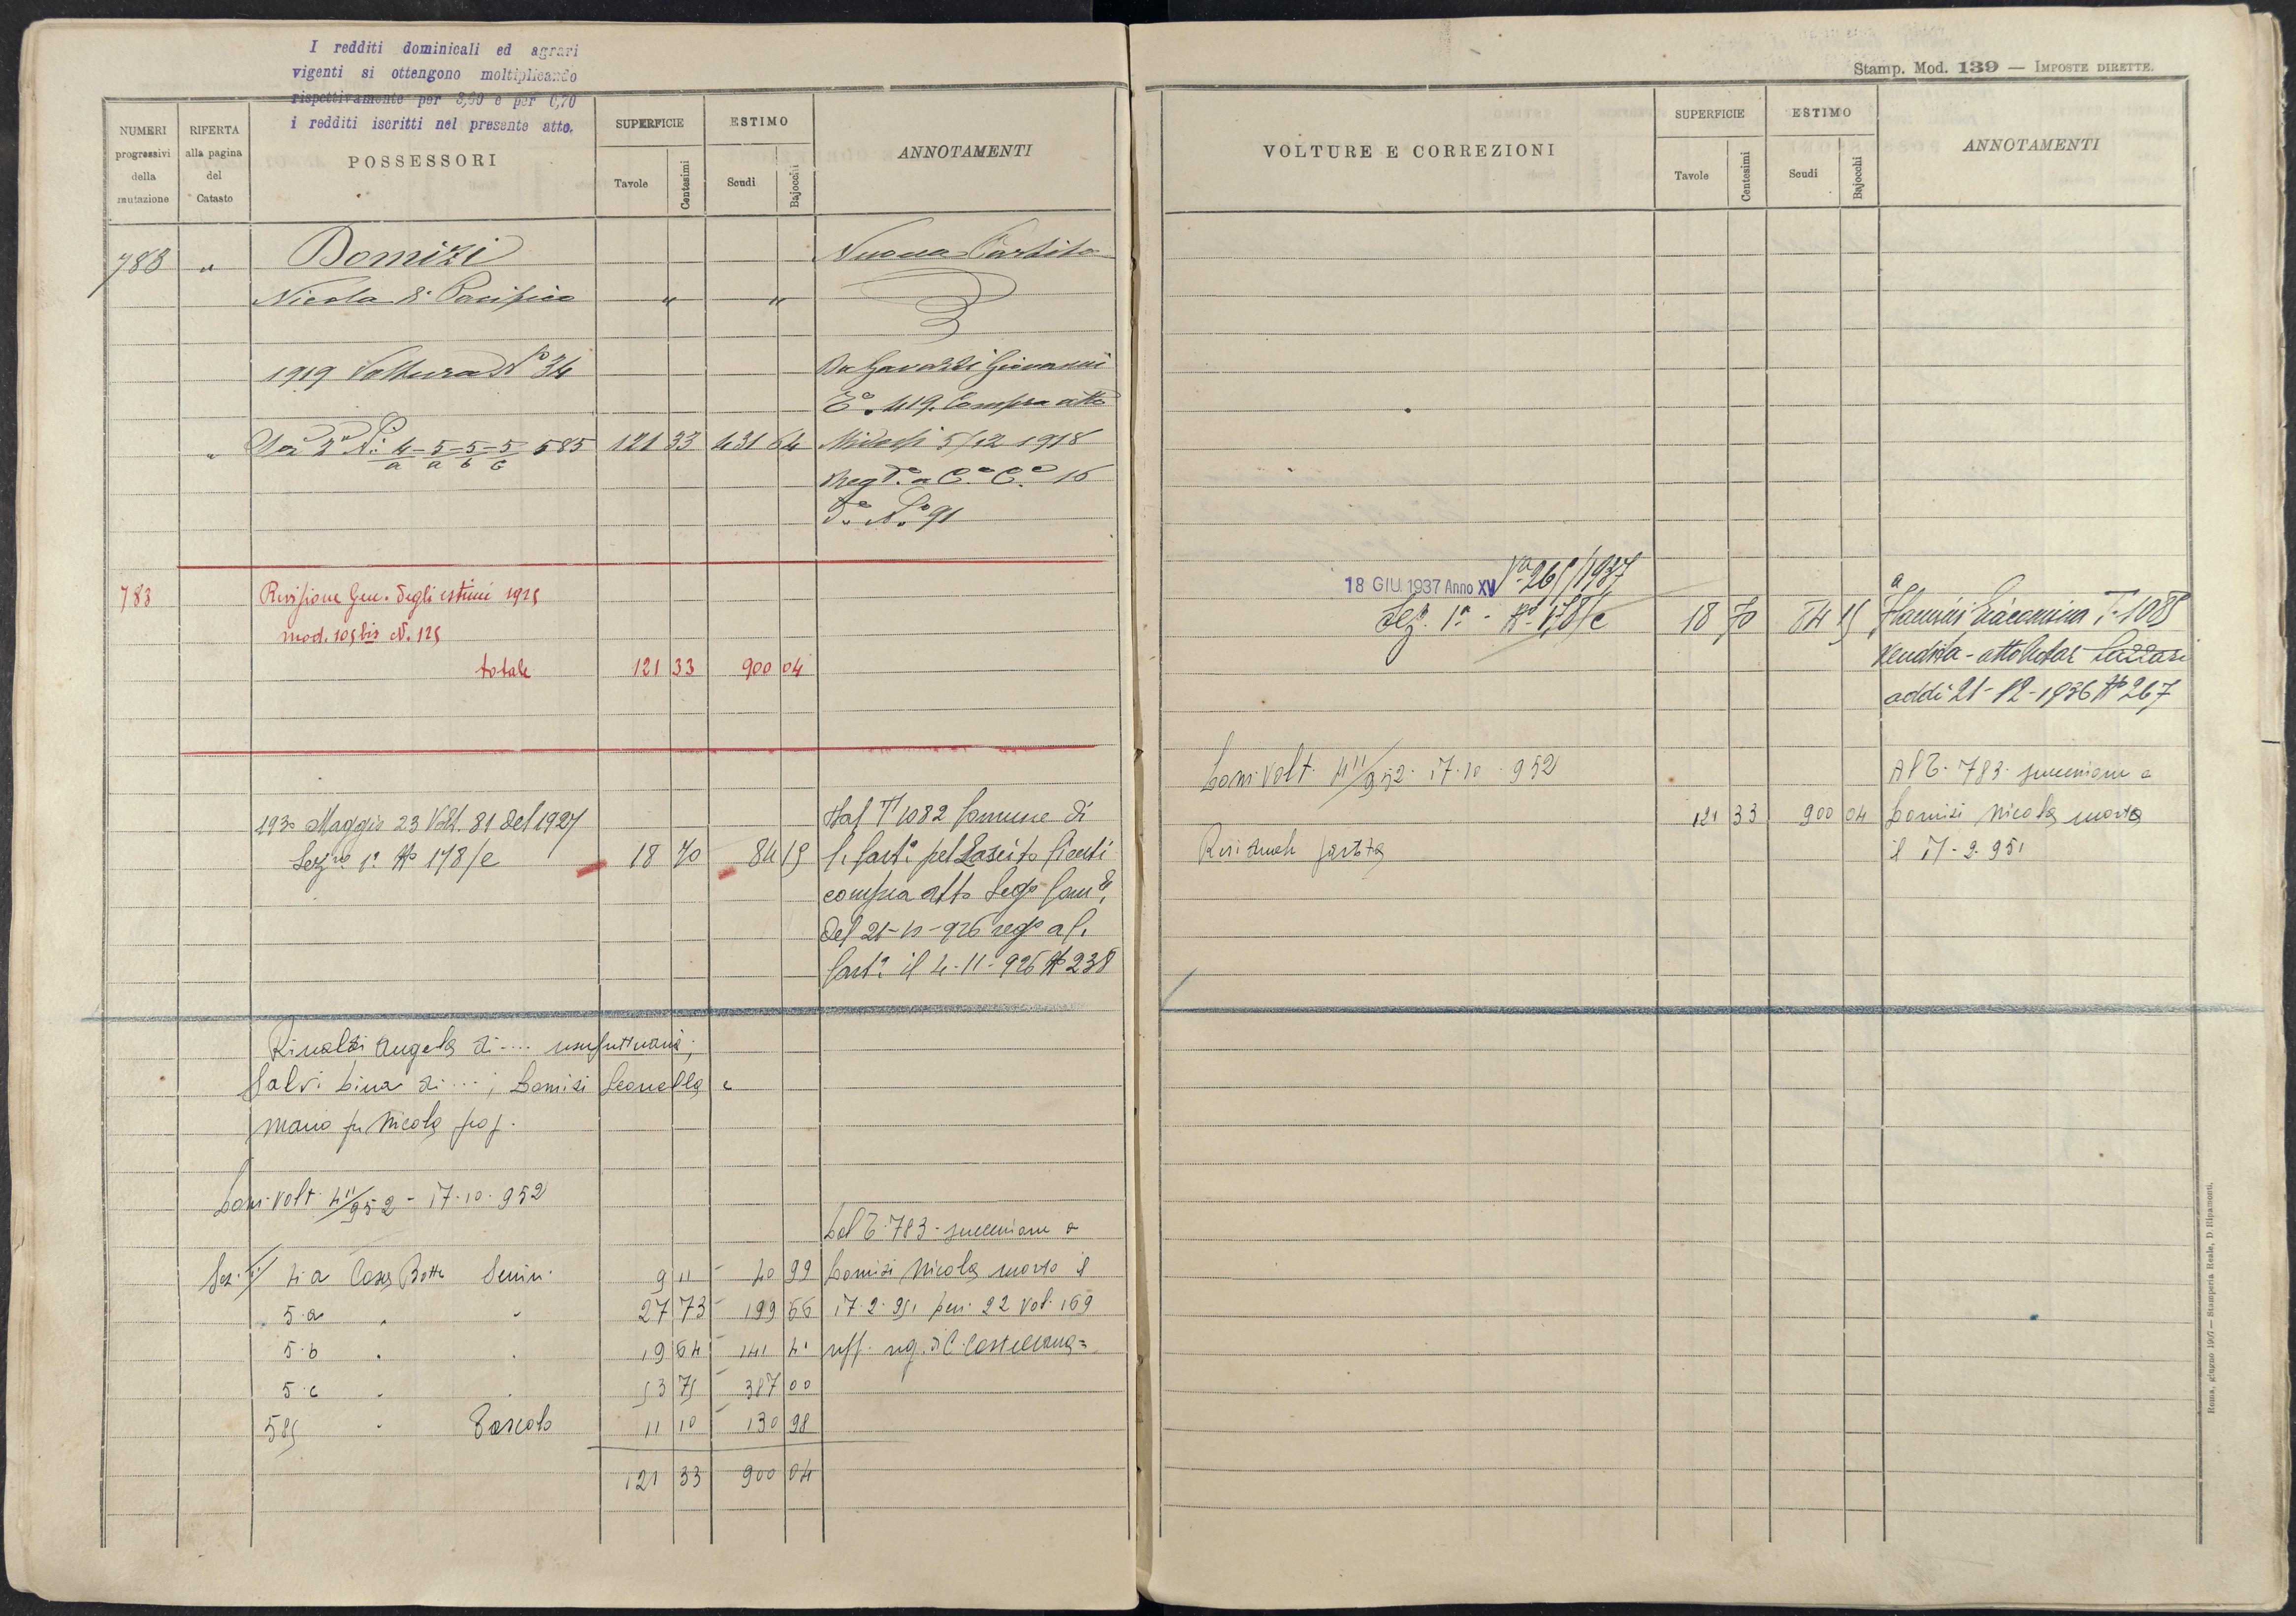 I redditi dominicali ed agrari
vigenti si ottengono moltiplicando
rispettivamente per 3,60 e per 0,70
i redditi iscritti nel presente atto.
NUMERI progressivi della mutazione
RIFERTA alla pagina del Catasto
POSSESSORI
SUPERFICIE
Tavole
Centesimi
ESTIMO
Scudi
Bajocchi
ANNOTAMENTI
788 " Domizi Nuova Partita
Nicola di Pacifico " "
1919 Voltura N° 34 Da Gavazzi Giovanni
E° 419. Compra atto
Sez 3a N. 4/a - 5/a - 5/b - 5/c 585 121 33 431 64 5/12 1918
Reg° a C° C° 16
N° 91
783 Revisione Gen. degli estimi 1925
mod. 109 bis N. 125
totale 121 33 900 04
1930 Maggio 23 Volt. 81 del 1927 Dal T 1082 Comune di
Sez ne 1a N° 178/c 18 70 84 15 C. Cast.a pel Lascito
compra atto Seg° Com.le
del 21-10-926 reg° a C.
Cast.a il 4-11-926 N° 238
Rinaldi Angela di .... usufruttuaria;
Salvi Dina di ...; Domizi Leonella e
Mario fu Nicola prop.
Dom. Volt. 411/952 - 17.10.952
Dal T. 783 - successione a
Sez. 4.a Casa Botte Semin. 9 11 40 99 Domizi Nicola morto il
5.a " " 27 73 199 66 17.2.951 den. 22 vol. 169
5.b " " 19 64 141 41 uff. reg. di C. Castellana =
5.c " " 53 75 387 00
585 " Pascolo 11 10 130 98
121 33 900 04
Stamp. Mod. 139 — IMPOSTE DIRETTE.
VOLTURE E CORREZIONI
SUPERFICIE
Tavole
Centesimi
ESTIMO
Scudi
Bajocchi
ANNOTAMENTI
18 GIU 1937 Anno XV Va 265/1937
Sez. 1a - N° 178/c 18 70 84 15 a Flamini Giacomina T. 1085
Vendita - atto Notar Lazzari
addi 21-12-1936 N° 267
Dom. Volt. 411/952. 17.10.952 Al T. 783 successione a
121 33 900 04 Domizi Nicola morto
Residuale partita il 17.2.951
Roma, giugno 1907 — Stamperia Reale, D. Ripamonti.